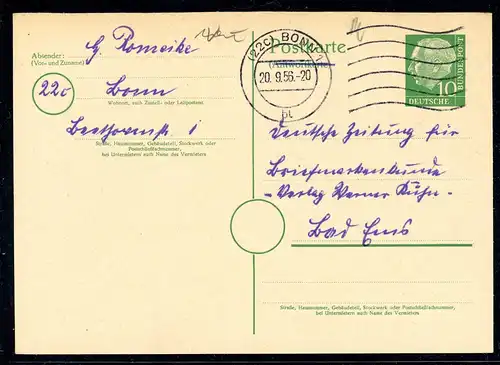 Absender:
(Vor- und Zuname)
G. Romeike
22c
Bonn
Wohnort, auch Zustell- oder Leitpostamt
Beethovenstr. 1
Straße, Hausnummer, Gebäudeteil, Stockwerk oder
Postschließfachnummer,
bei Untermietern auch Name des Vermieters
Postkarte
(Antwortkarte)
(22c) BONN 1
20. 9.56.-20
bt
10
DEUTSCHE
BUNDESPOST
Deutsche Zeitung für
Briefmarkenkunde
- Verlag Werner Kuhn -
Bad Ems
Straße, Hausnummer, Gebäudeteil, Stockwerk oder Postschließfachnummer,
bei Untermietern auch Name des Vermieters